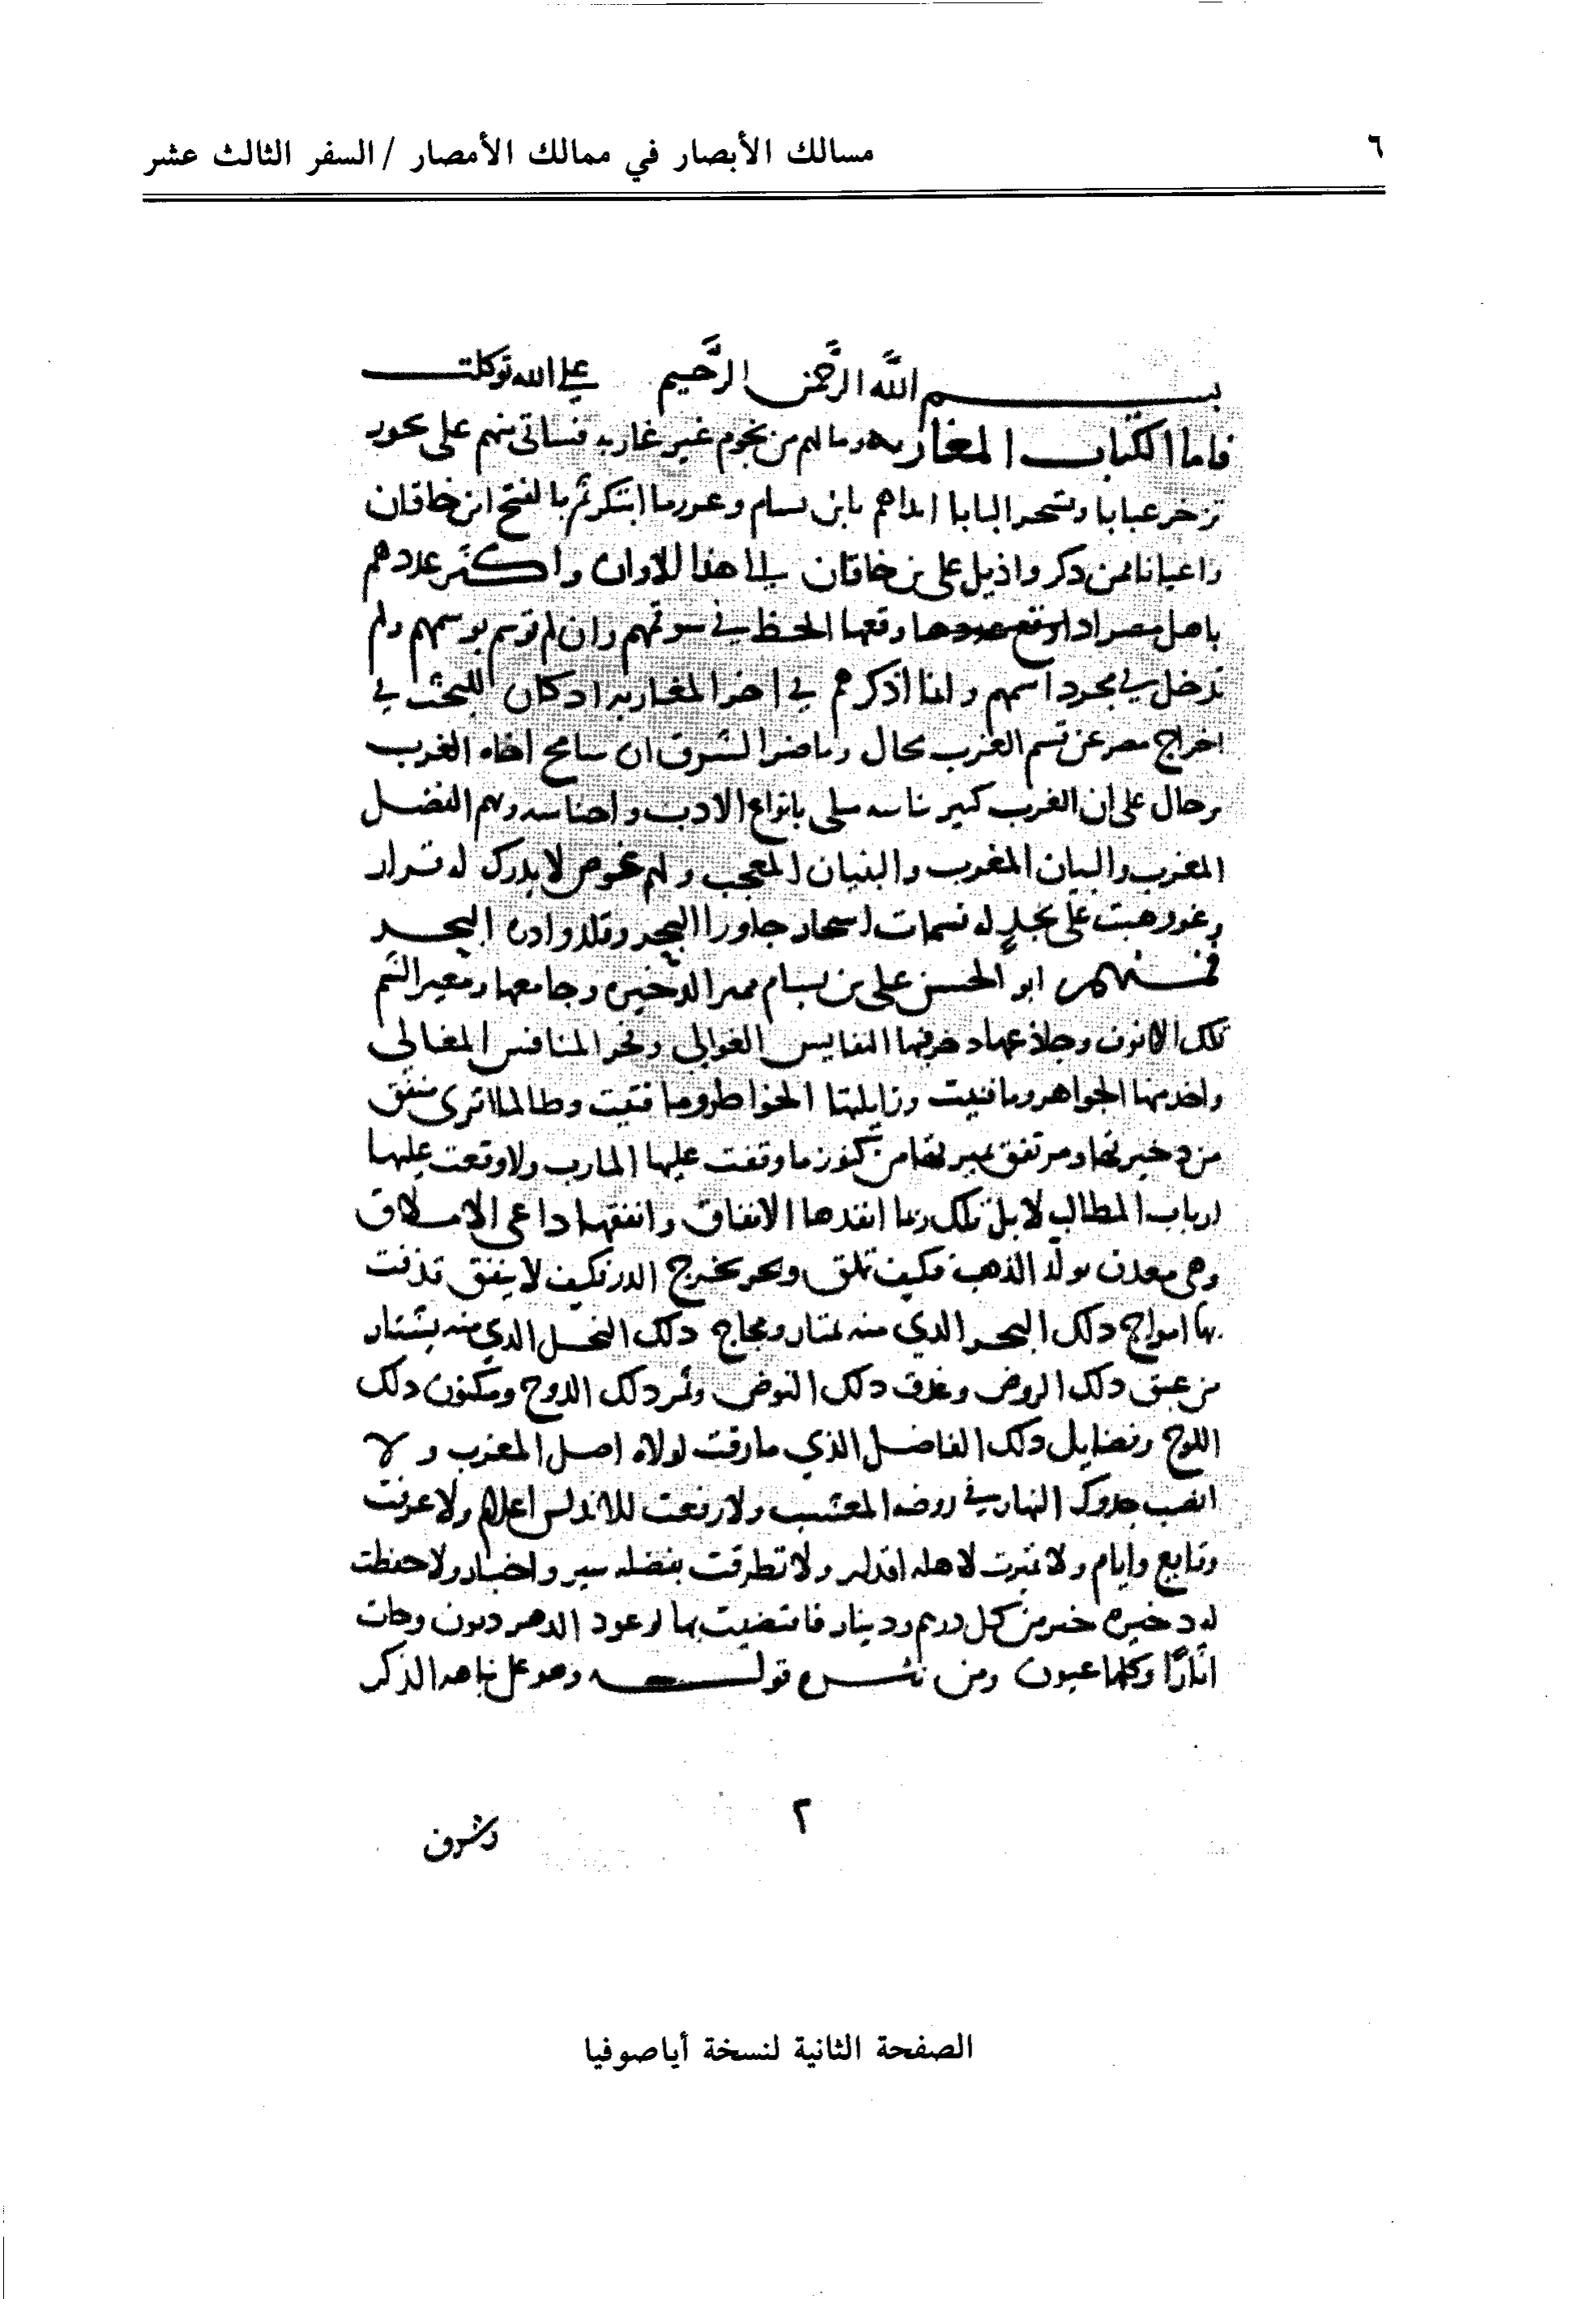 ٦
مسالك الأبصار في ممالك الأمصار / السفر الثالث عشر
بسم الله الرَّحمن الرَّحيم على الله توكلت
فاما الكتاب المغاربه وما لهم من نجوم غير غاربه فسناتى منهم على بحور
تزخر عبابا وتسحر البابا ابداهم بابن بسام ثم بالفتح ابن خاقان
واعيانا ممن ذكر واذيل على بن خاقان الى هذا الاوان واكثر عددهم
باهل مصر اوقعها الحظ في سوقهم وان لم توسم بوسمهم ولم
تدخل في مجرد اسمهم وانا اذكرهم في اخر المغاربه اد كان للبحث في
اخراج مصر عن قسم الغرب مجال وما ضر الشرق ان سامح اخاه الغرب
برجال على ان الغرب كبير ناسه ملى بانواع الادب واجناسه ولهم الفضل
المغرب والبيان المغرب والبنيان المعجب ولهم غوص لا يدرك له قرار
هبت على نسمات اسحار جاورا البحر
فمنهم ابو الحسن على بن بسام الدخيره وجامعها
تلك الانوف النفايس الغوالي المنافس المغالي
واخد منها الجواهر وما فنيت وزايلتها الخواطر وما فتيت وطالما اثرى منفق
من دخيرتها ومرتفق من كنوز ما وقفت عليها المارب ولا وقعت عليها
ارباب المطالب لا بل تلك ربما انفدها الانفاق وانفقها داعى الاملاق
وهى معدن تولد الذهب فكيف تملق وبحر يخرج الدر فكيف لا ينفق قذفت
بها امواج دلك البحر الدي منه تمتار ومجاج دلك النحل الدي منه يشتار
من عبق دلك الروض وغدق دلك النوض وثمر دلك الدوح ومكنون دلك
اللوح وفضايل دلك الفاضل الذي مارقت لولاه اصل المغرب ولا
النهار في روضه المعشب ولا رفعت للاندلس اعلام ولا عرفت
وقايع وايام ولا تميزت لاهله اقدار ولا تطرقت بفضله سير واخبار ولا حفظت
له دخيره خير من كل درهم ودينار فاقتضيت بها لوعود الدهر ديون وجات
اثارًا وكلها عيون ومن نثره قوله وهو على نباهه الذكر
٢
وشرف
الصفحة الثانية لنسخة أياصوفيا